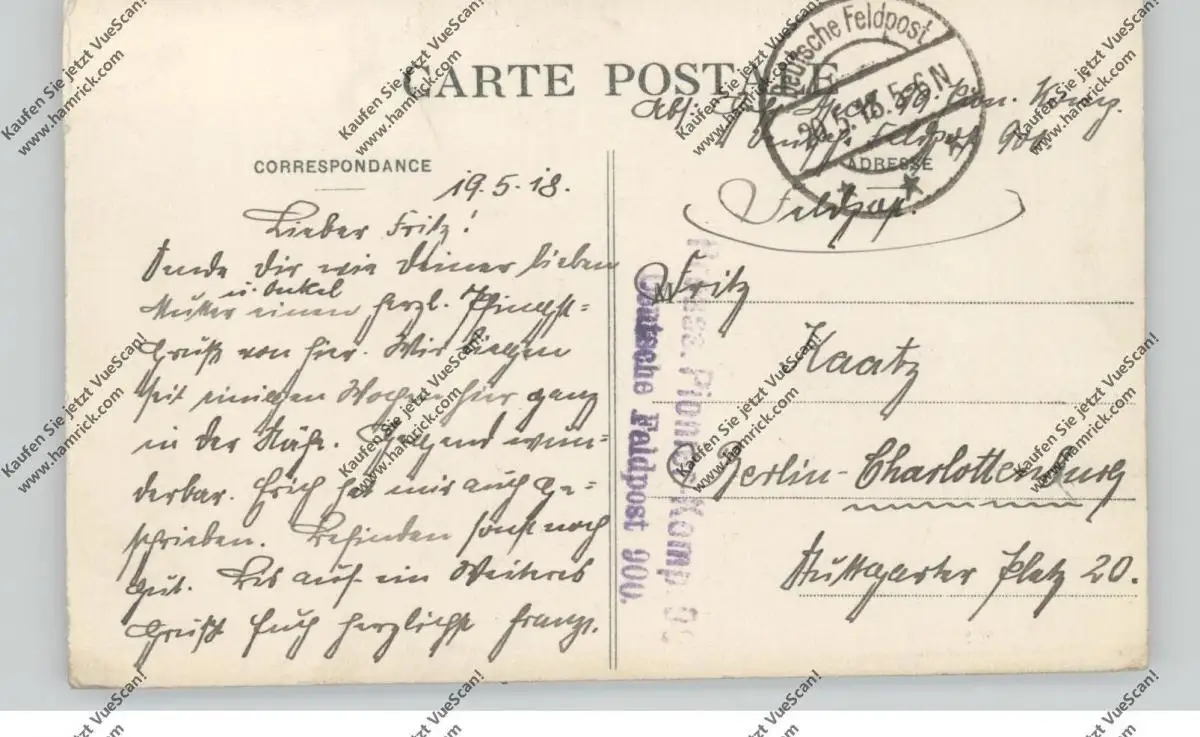 CARTE POSTALE
Deutsche Feldpost
20.5.18. 5-6 N
Abs:
Pion. Komp.
Deutsche Feldpost 900
CORRESPONDANCE
ADRESSE
19.5.18.
Feldpost.
Lieber Fritz!
Sende Dir wie Deiner lieben
u. Onkel
Mutter einen herzl. Pfingst-
Gruß von hier. Wir liegen
seit einigen Wochen hier ganz
in der Nähe. Gegend wun-
derbar. Erich hat mir auch ge-
schrieben. Befinden sonst noch
gut. Bis auf ein Weiteres
Grüßt Euch herzlichst Franz.
Fritz
Kaatz
Berlin-Charlottenburg
Stuttgarter Platz 20.
Preuss. Pionier-Komp.
Deutsche Feldpost 900.
Kaufen Sie jetzt VueScan!
www.hamrick.com